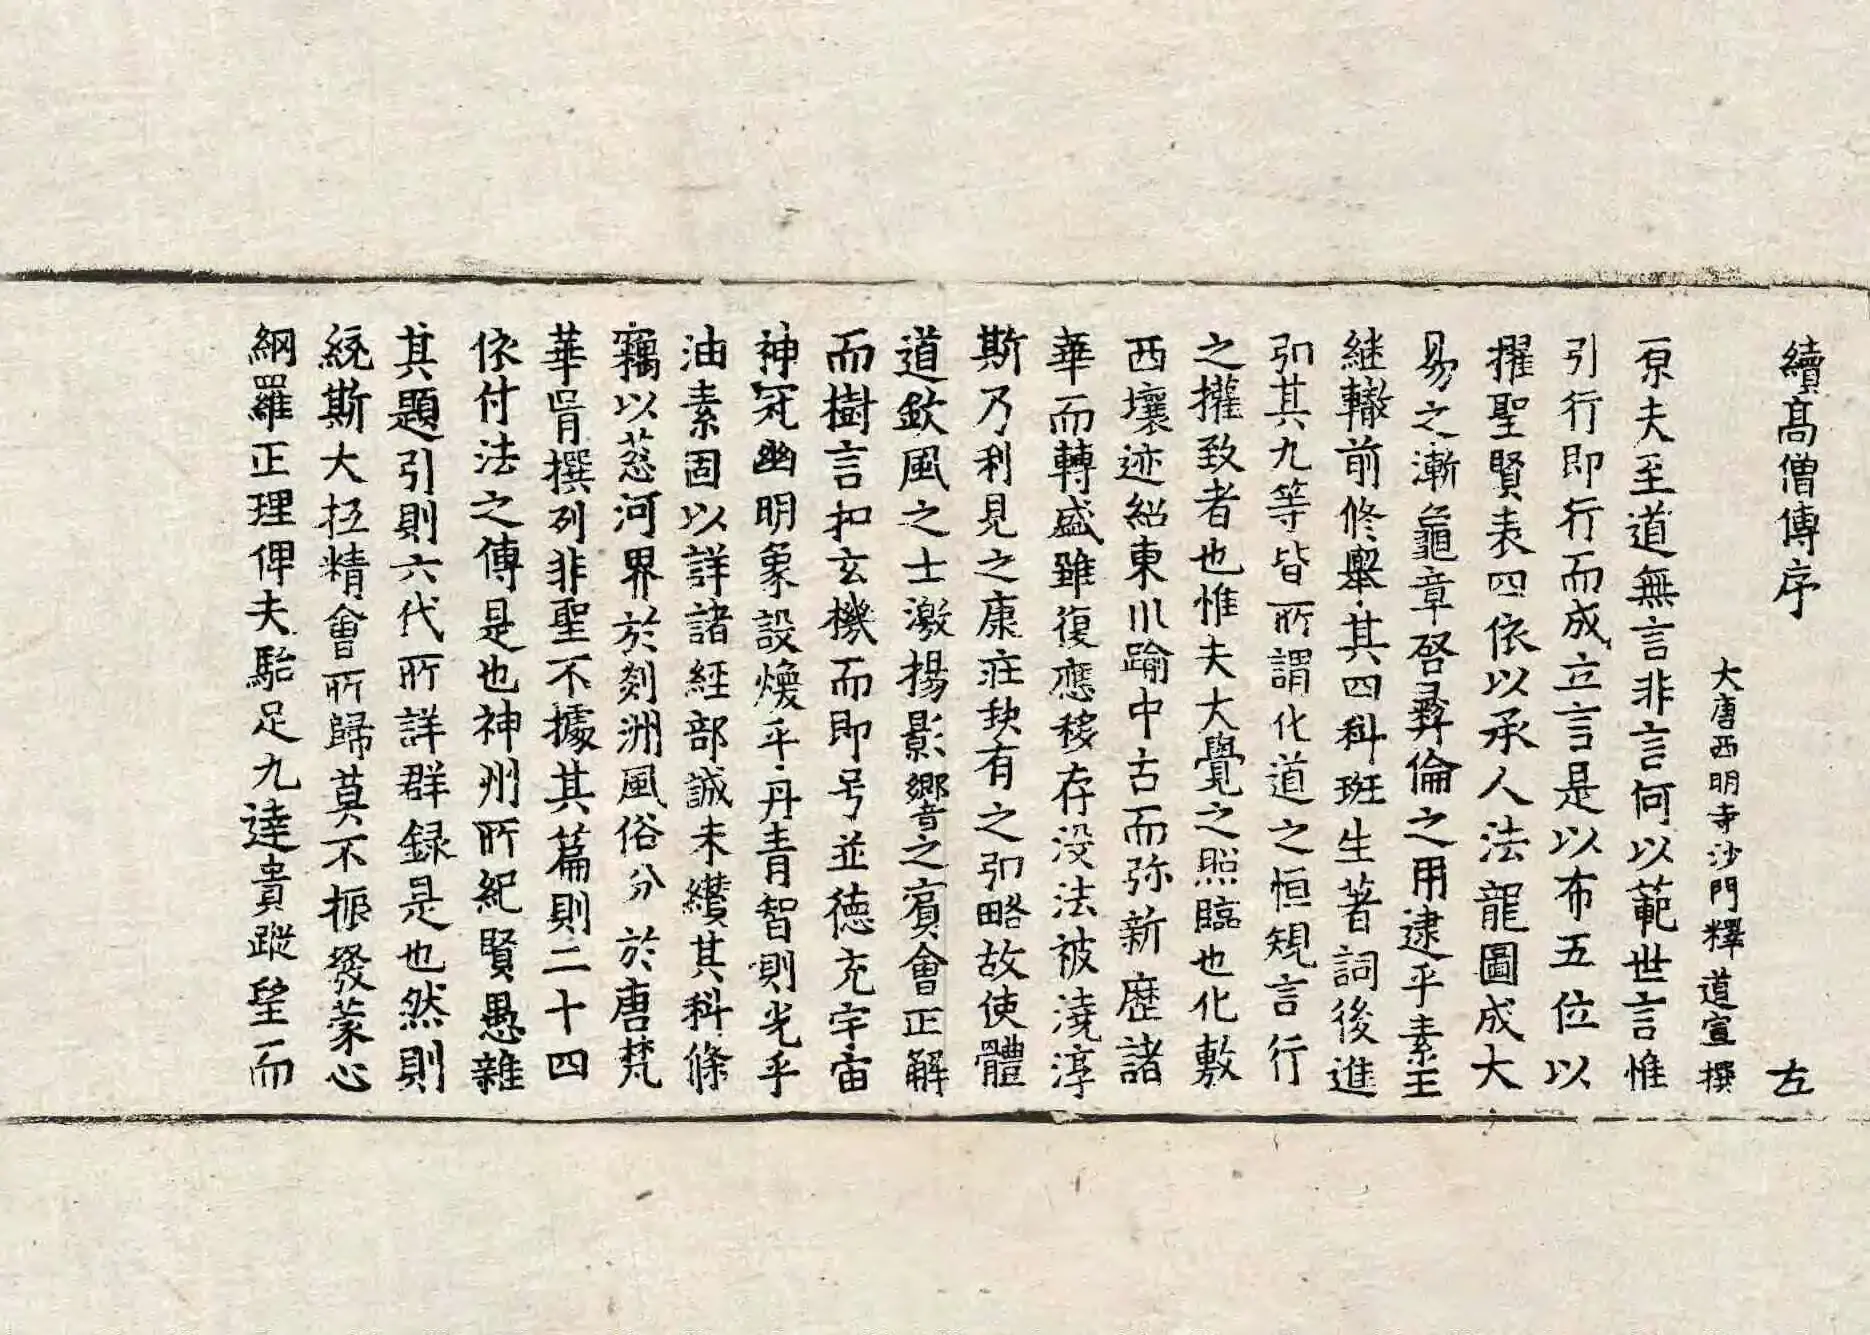 續高僧傳序 左
大唐西明寺沙門釋道宣撰
原夫至道無言非言何以範世言惟
引行即行而成立言是以布五位以
擢聖賢表四依以承人法龍圖成大
易之漸龜章啓彛倫之用逮乎素王
継轍前修舉其四科班生著詞後進
弘其九等皆所謂化道之恒規言行
之攉致者也惟夫大覺之照臨也化敷
西壤迹紹東川踰中古而弥新歷諸
華而轉盛雖復應移存没法被澆淳
斯乃利見之康莊缺有之弘略故使體
道欽風之士激揚影響之賓會正解
而樹言扣玄機而即号並德充宇宙
神冠幽明象設煥乎丹青智則光乎
油素固以詳諸經部誠未纘其科條
竊以葱河界於剡洲風俗分於唐梵
華胥撰列非聖不據其篇則二十四
依付法之傳是也神州所紀賢愚雜
其題引則六代所詳群録是也然則
統斯大抵精會所歸莫不振發蒙心
綱羅正理俾夫駘足九逵貴蹤望而